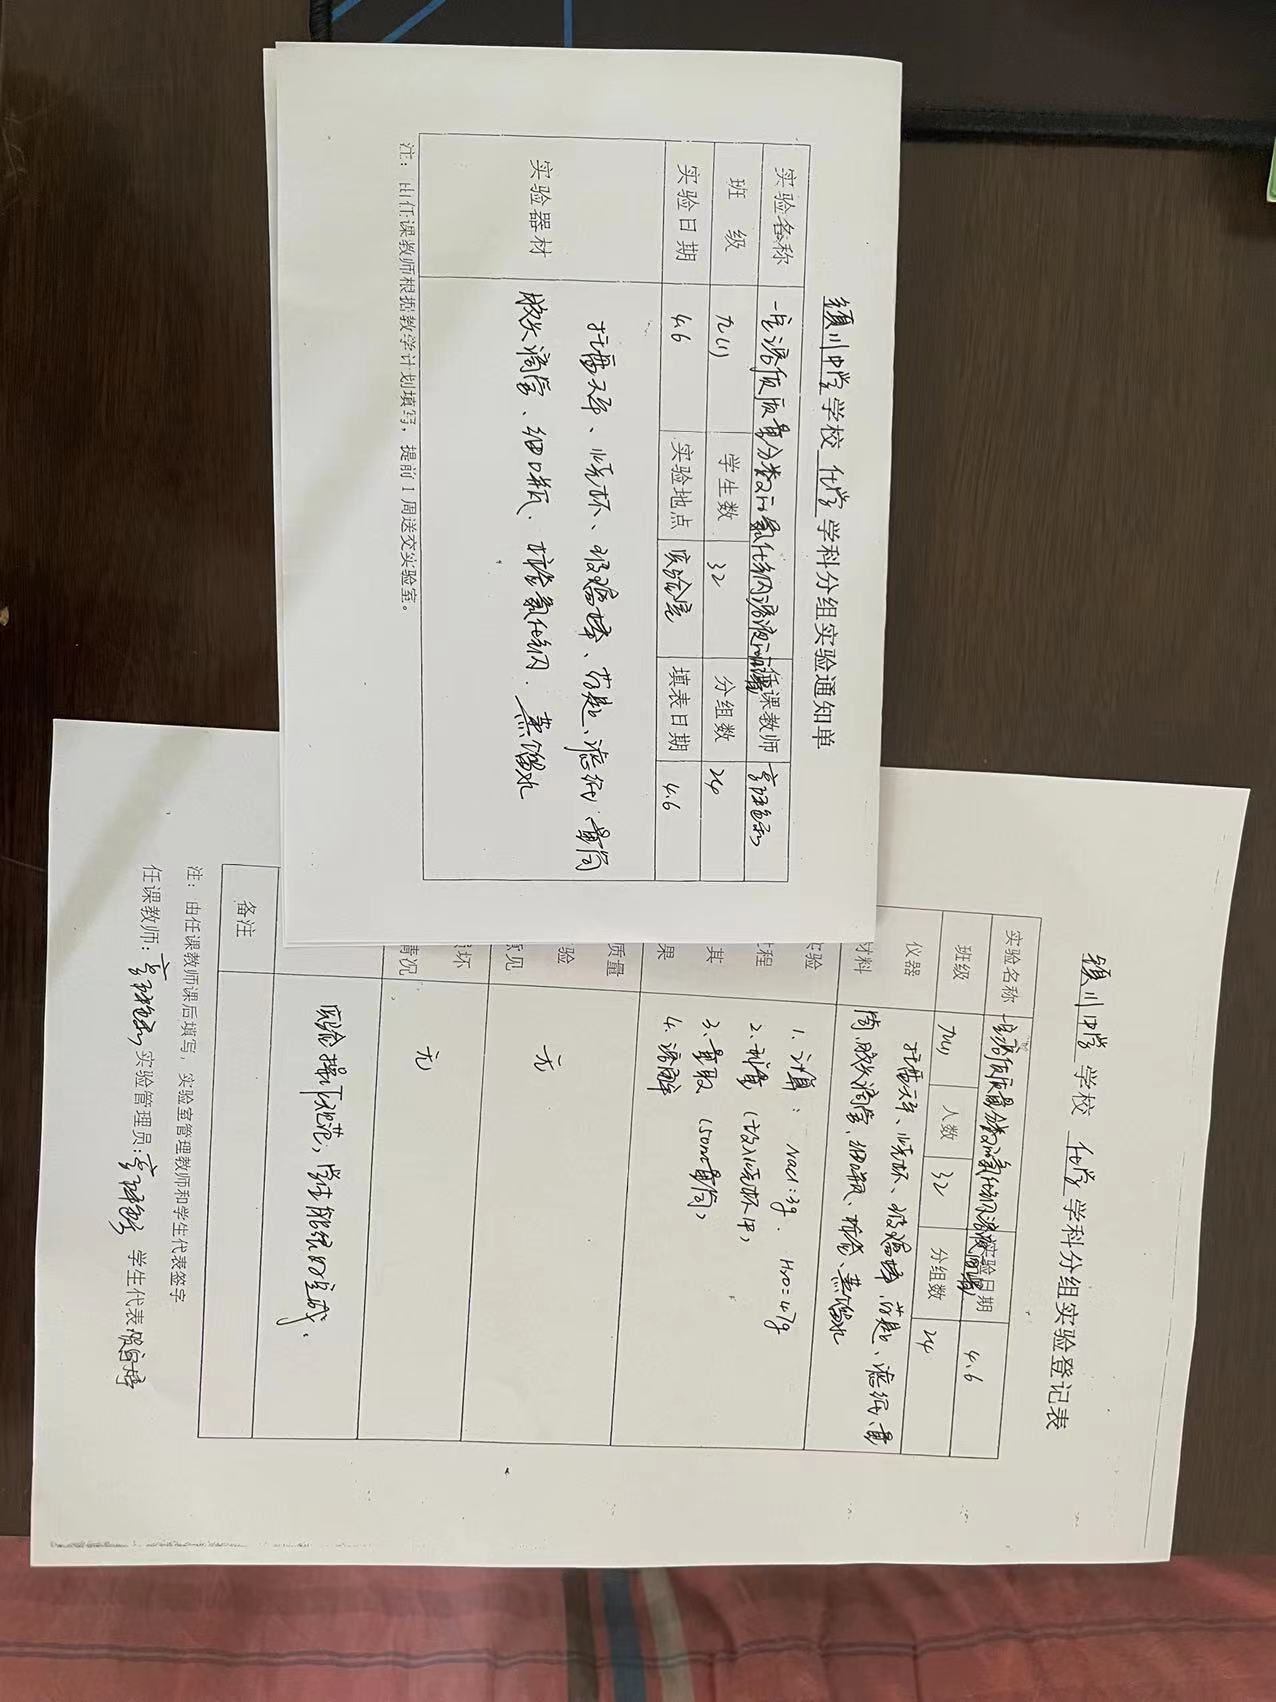 颍川中学 学校 化学 学科分组实验通知单
实验名称 一定溶质质量分数的氯化钠溶液的配制 任课教师
班级 九(1) 学生数 32 分组数 24
实验日期 4.6 实验地点 实验室 填表日期 4.6
实验器材 托盘天平、烧杯、玻璃棒、药匙、滤纸、量筒
胶头滴管、细口瓶、标签 氯化钠、蒸馏水
注:由任课教师根据教学计划填写,提前1周送交实验室。
颍川中学 学校 化学 学科分组实验登记表
实验名称 一定溶质质量分数的氯化钠溶液的配制 实验日期 4.6
班级 九(1) 人数 32 分组数 24
仪器 托盘天平、烧杯、玻璃棒、药匙、滤纸、量
材料 筒、胶头滴管、细口瓶、标签、蒸馏水
实验 1. 计算: NaCl:3g. H2O=47g
过程 2. 称量(放入烧杯中)
其 3. 量取(50ml量筒)
果 4. 溶解
质量
验 无
意见
坏 无
情况
实验操作规范,学生能很好完成.
备注
注:由任课教师课后填写,实验室管理教师和学生代表签字
任课教师: 实验管理员: 学生代表: